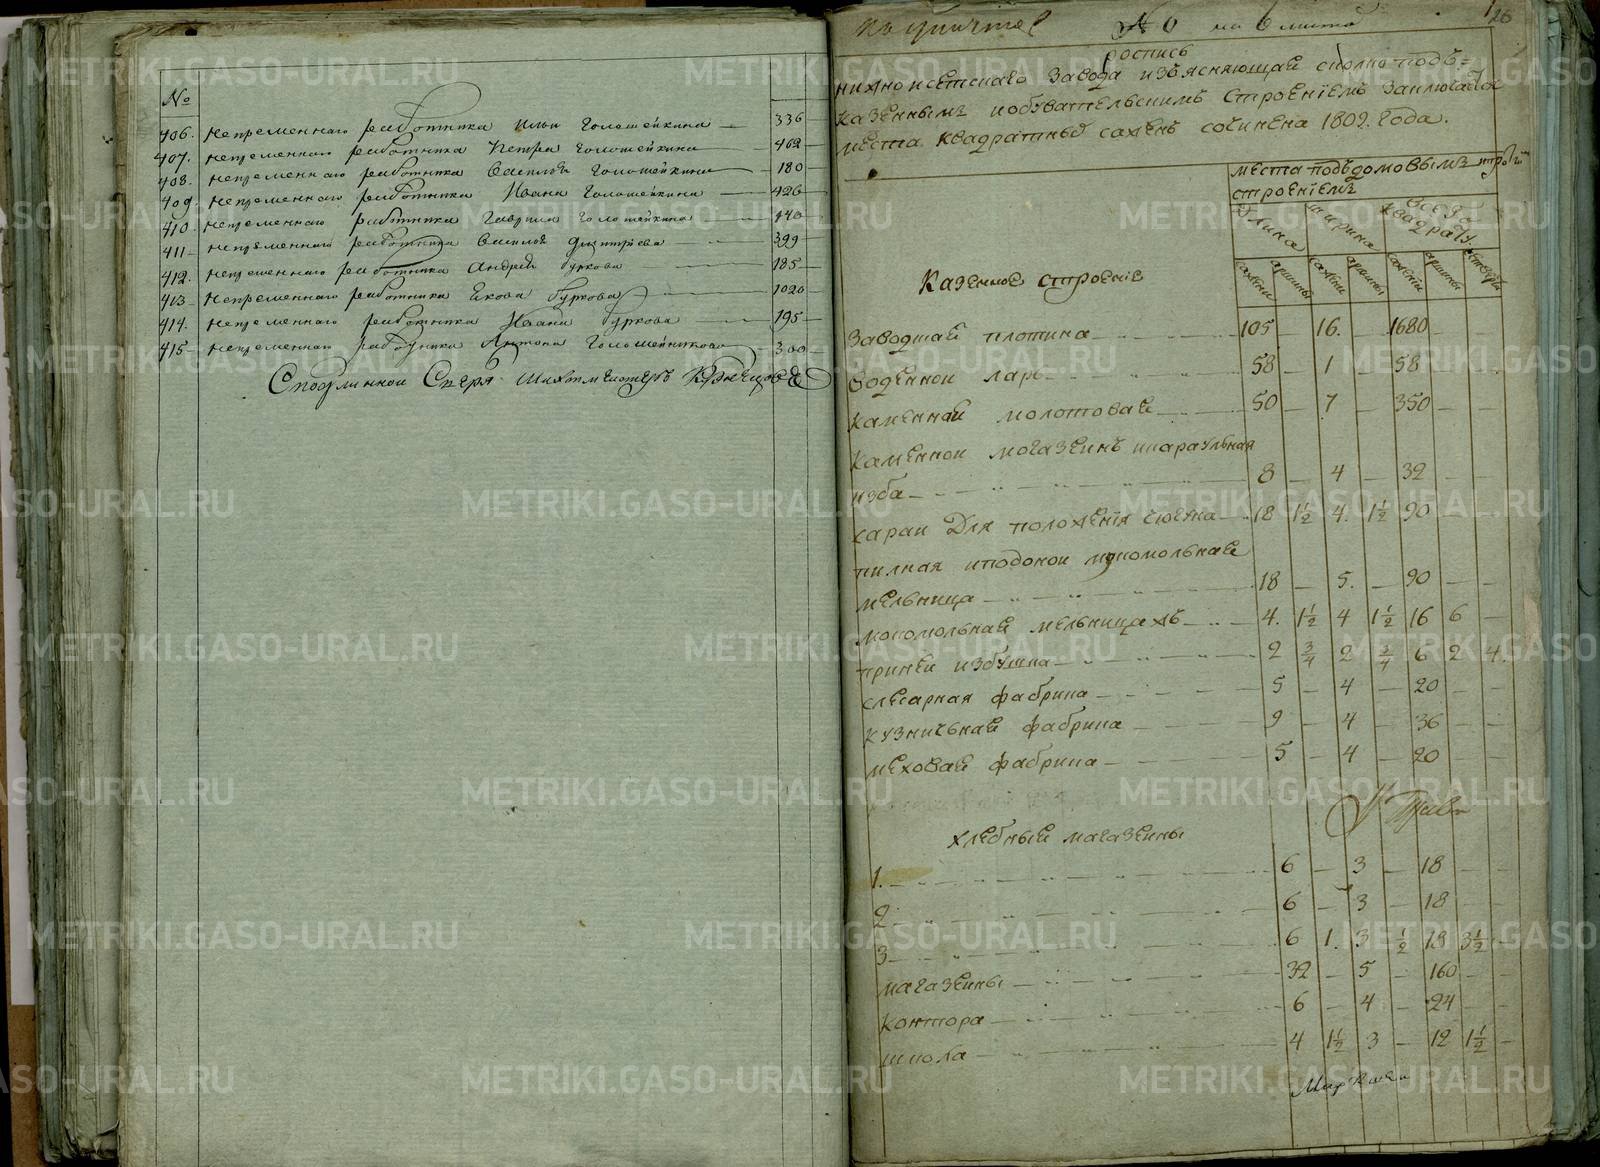 №
406. непременнаго работника Ильи Голошейкина — 336
407. непременнаго работника Петра Голошейкина 462
408. непременнаго работника Василья Голошейкина — 180
409. непременнаго работника Ивана Голошейкина — 426
410. непременнаго работника Гаврила Голошейкина — 140
411. непременнаго работника Василья Дмитриева — 399
412. непременнаго работника Андрея Гуркова — 185
413. непременнаго работника Екова Гуркова — 1020
414. непременнаго работника Ивана Гуркова — 195
415. непременнаго работника Антона Голошейникова — 300
Шихтмейстеръ Кузнецовъ
26
№ 6 на 6 листа
роспись
нижноисетскаго завода изъясняющая сколко подъ=
казеннымъ иобывательскимъ строениемъ заключается
места квадратныя сажень сочинена 1802. года.
места подъдомовымъ
строениемъ
Длина ширина всего квадрату.
сажени аршины сажени аршины сажени аршины четверти
Казенное строение
Заводская плотина — 105 — 16. — 1680 —
воденной ларь — 58 — 1 — 58 —
каменная молотовая — 50 — 7 — 350 — —
Каменной могазеинъ икараульная
изба — 8 4 — 32
сараи Для положения — 18 1½ 4. 1½ 90 —
пилная иподокои мукомольная
мельница — 18 — 5. — 90 — —
мокомольнай мельницахъ — 4. 1½ 4 1½ 16 6 —
принеи избушка — 2 ¾ 2 ¾ 6 2 4.
слесарная фабрика — 5 — 4 — 20 — —
кузничьная фабрика — 9 — 4 — 36 — —
меховая фабрика — 5 — 4 — 20 — —
хлебныя магазеины
1. — 6 — 3 — 18 — —
2 — 6 — 3 — 18 — —
3 — 6 1. 3 ½ 19 3½ —
магазеины — 32 — 5 — 160 — —
контора — 6 — 4 — 24 — —
школа — 4 1½ 3 — 12 1½ —
METRIKI.GASO-URAL.RU